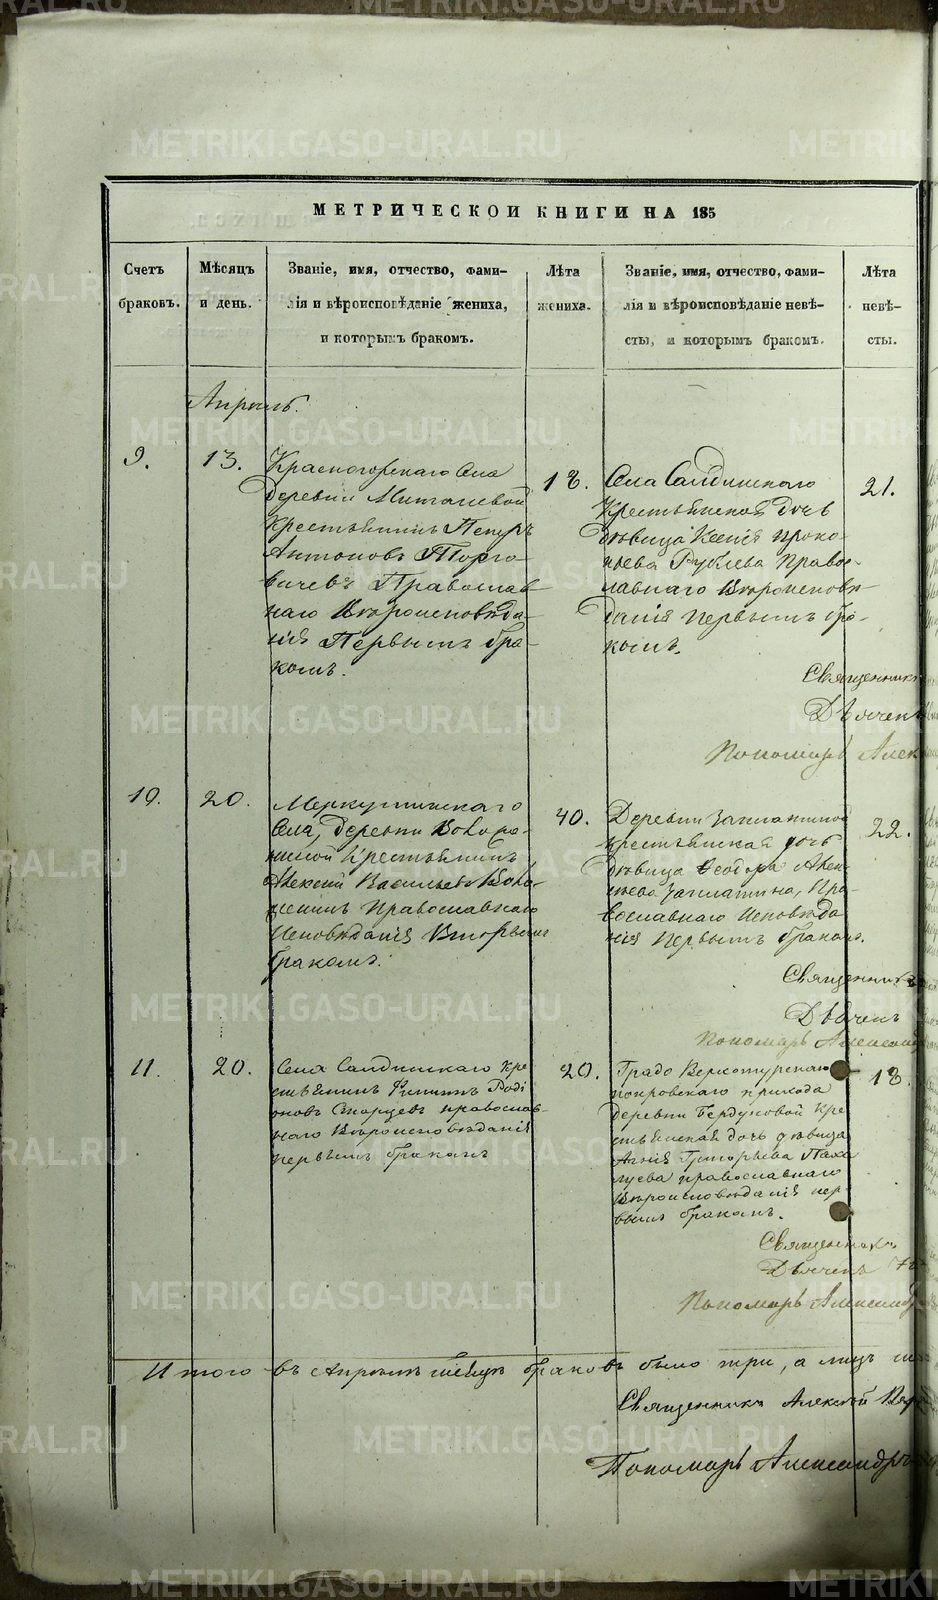 МЕТРИЧЕСКОЙ КНИГИ НА 185
Счетъ
браковъ.
Мѣсяцъ
и день.
Званіе, имя, отчество, фами-
лія и вѣроисповѣданіе жениха,
и которымъ бракомъ.
Лѣта
жениха.
Званіе, имя, отчество, фами-
лія и вѣроисповѣданіе невѣ-
сты, и которымъ бракомъ.
Лѣта
невѣ-
сты.
Апрѣль.
9.
13.
Красногорскаго Села
деревни Миталевой
крестьянинъ Петръ
Антоновъ Торго-
вичевъ Православ-
наго Вѣроисповѣда-
нія Первымъ бра-
комъ.
18.
Села Салдинскаго
Крестьянская дочь
дѣвица Ксенія Проко-
пьева Рублева Право-
славнаго Вѣроисповѣ-
данія первымъ бра-
комъ.
21.
Священникъ
Дьячекъ
Пономарь Алек
10.
20.
Меркушинскаго
Села, деревни
Крестьянинъ
Алексѣй Васильевъ
Православнаго
Исповѣданія Вторымъ
бракомъ.
40.
Деревни Заплатиной
крестьянская дочь
дѣвица Ѳеодора Алек-
сѣева Заплатина, Пра-
вославнаго Исповѣда
нія первымъ бракомъ.
22.
Священникъ
Дьячекъ
Пономарь Алексан
11.
20.
Села Салдинскаго кре
стьянинъ Филиппъ Роді
оновъ Скорцевъ православ-
наго Вѣроисповѣданія
первымъ бракомъ
20.
Градо Верхотурскаго
покровскаго прихода
деревни Бердуновой кре
стьянская дочь дѣвица
Агнія Григорьева Паха
луева православнаго
Вѣроисповѣданія пер-
вымъ бракомъ.
18.
Священникъ
Дьячекъ
Пономарь Александр
Итого въ Апрѣлѣ мѣсяцѣ браковъ было три, а лицъ
Священникъ Алексѣй
Пономарь Александръ
METRIKI.GASO-URAL.RU